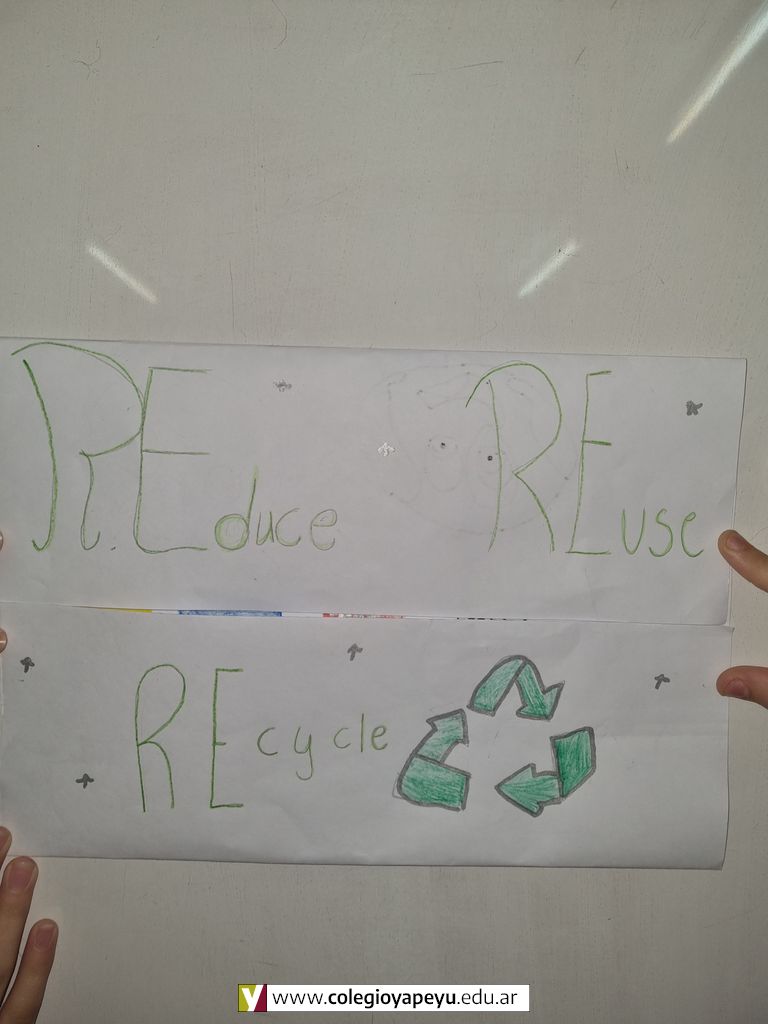 REduce REuse
REcycle
www.colegioyapeyu.edu.ar